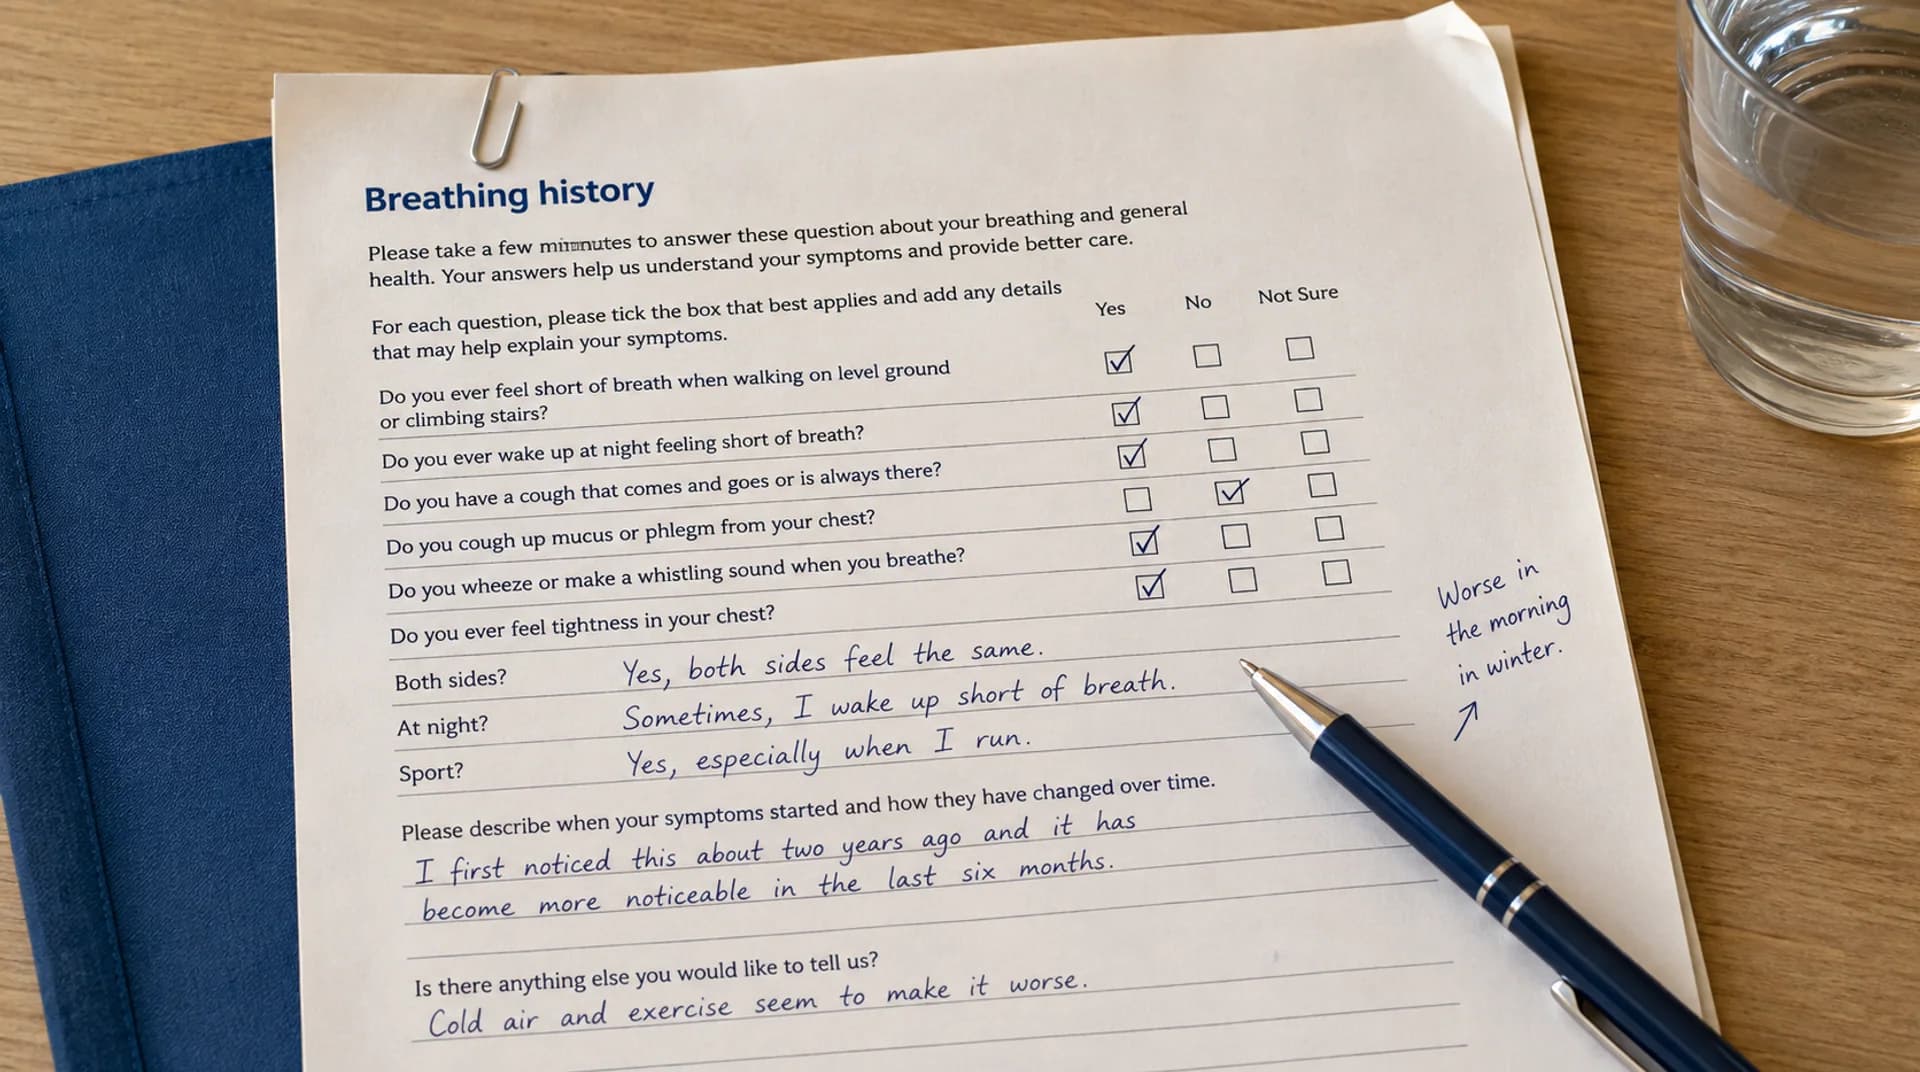 Breathing history
Please take a few to answer these question about your breathing and general
health. Your answers help us understand your symptoms and provide better care.
For each question, please tick the box that best applies and add any details
that may help explain your symptoms.
Yes No Not Sure
Do you ever feel short of breath when walking on level ground
or climbing stairs?
Do you ever wake up at night feeling short of breath?
Do you have a cough that comes and goes or is always there?
Do you cough up mucus or phlegm from your chest?
Do you wheeze or make a whistling sound when you breathe?
Do you ever feel tightness in your chest?
Both sides? Yes, both sides feel the same.
At night? Sometimes, I wake up short of breath.
Sport? Yes, especially when I run.
Worse in
the morning
in winter.
Please describe when your symptoms started and how they have changed over time.
I first noticed this about two years ago and it has
become more noticeable in the last six months.
Is there anything else you would like to tell us?
Cold air and exercise seem to make it worse.